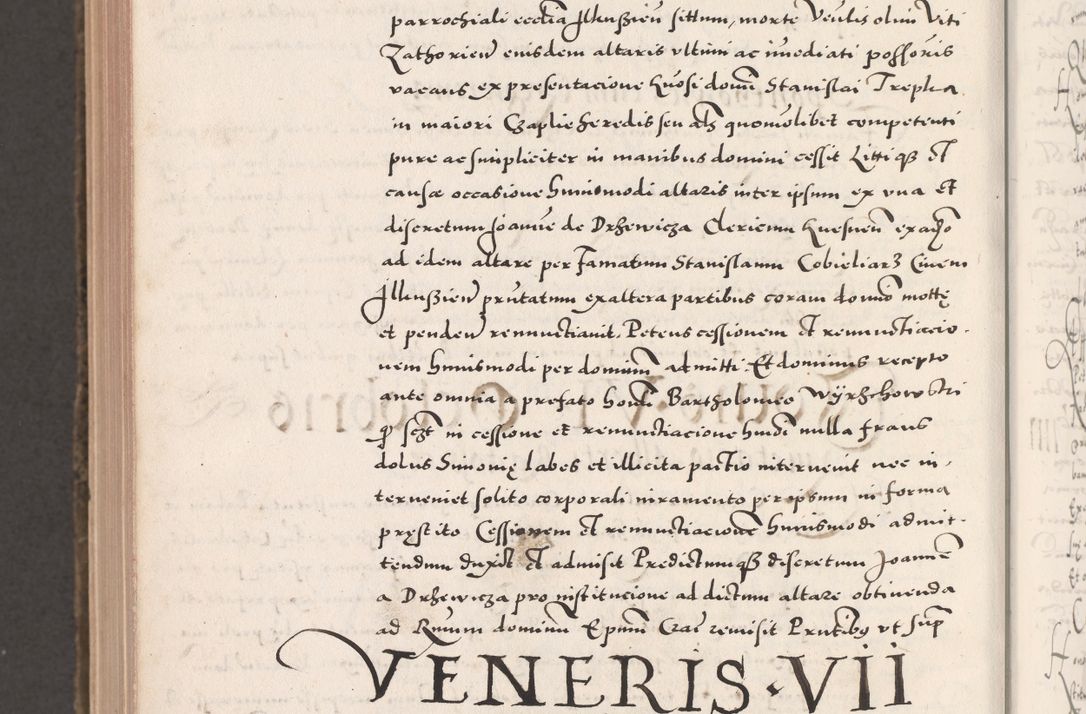 parrochiali ecclīa Jllkußieñ sittum, morte Veñlis olim Viti
Zathoriew eiusdem altaris vltimi ac īmediati possoris
vacans ex presentacione Gnosi domī Stanislai Treplca
in maiori Czaplie heredis seu als quomōlibet competenti
pure ac simpliciter in manibus domini cessit Litti qz et
causæ occasione huiusmodi altaris inter ipsum ex vna et
discretum Joannē de Drzewicza Clericum Gnesneñ ex adūo
ad idem altare per famatum Stanislaum Cobieliarz Ciuem
Jllkußieñ prñtatum ex altera partibus coram domīo mottę
et pendeñ renunctiauit. Petens cessionem et renunctiacio-
nem huiusmodi per dominum admitti. Et dominus recepto
ante omnia a prefato honōi Bartholomeo Wyrzchowski
qz sczt in cessione et renunctiacione huiōi nulla fraus
dolus Simonię labes et illicita pactio interuenit nec in-
terueniet solito corporali iuramento per ipsum in forma
pręstito Cessionem et renunctiacionē huiusmodi admit-
tendam duxit et admisit Predictumqz discretum Joannē
a Drzewicza pro institucione ad dictum altare obtinenda
ad Rūum dominū Epum Crac remisit Prñtibus vt supᵃ
VENERIS · VII